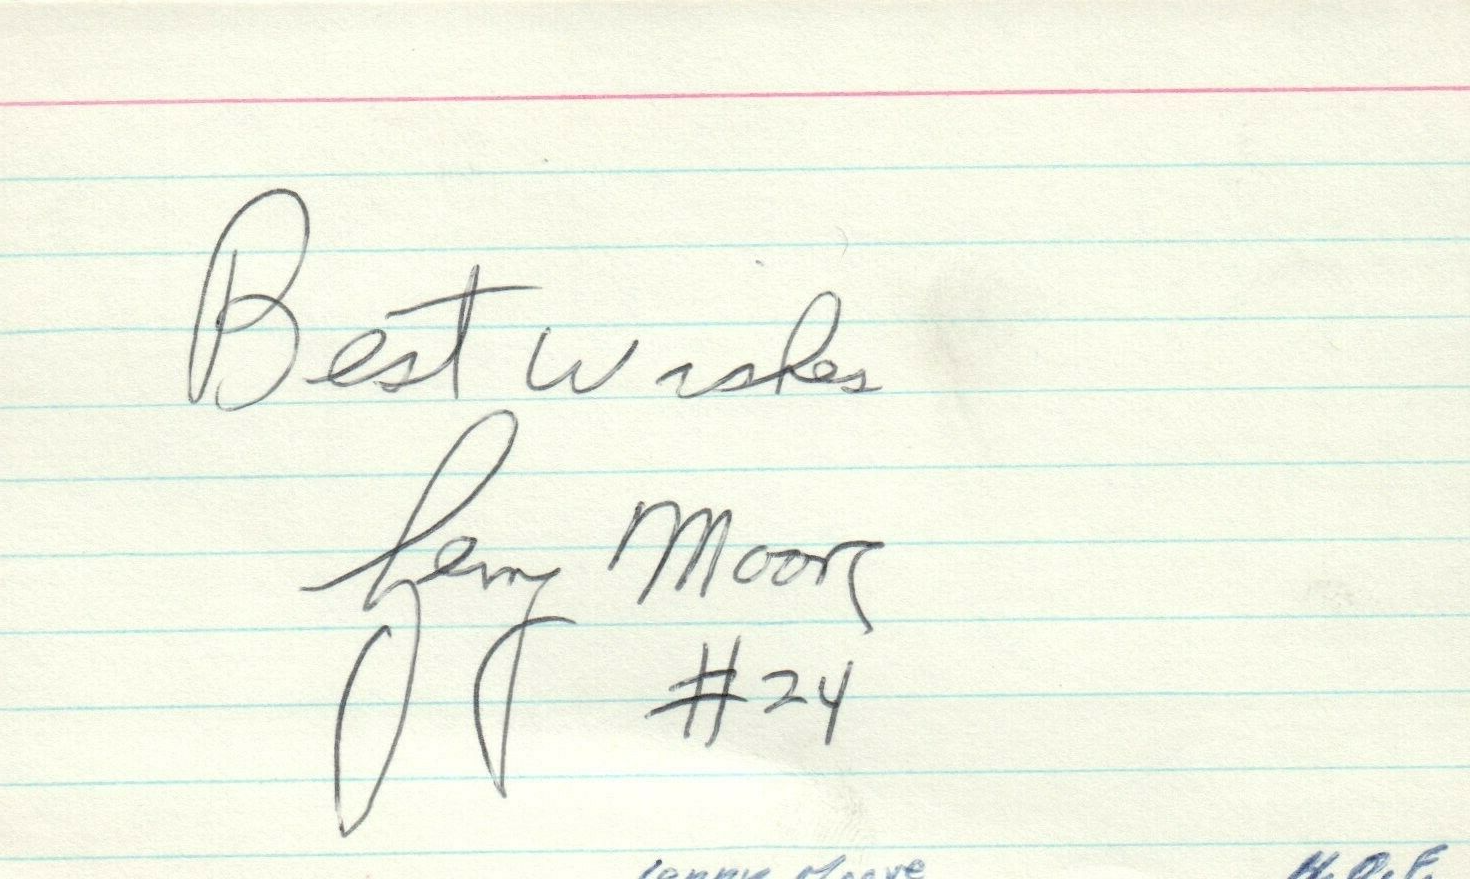 Best Wishes
Lenny Moore
#24
Lenny Moore H.O.F.